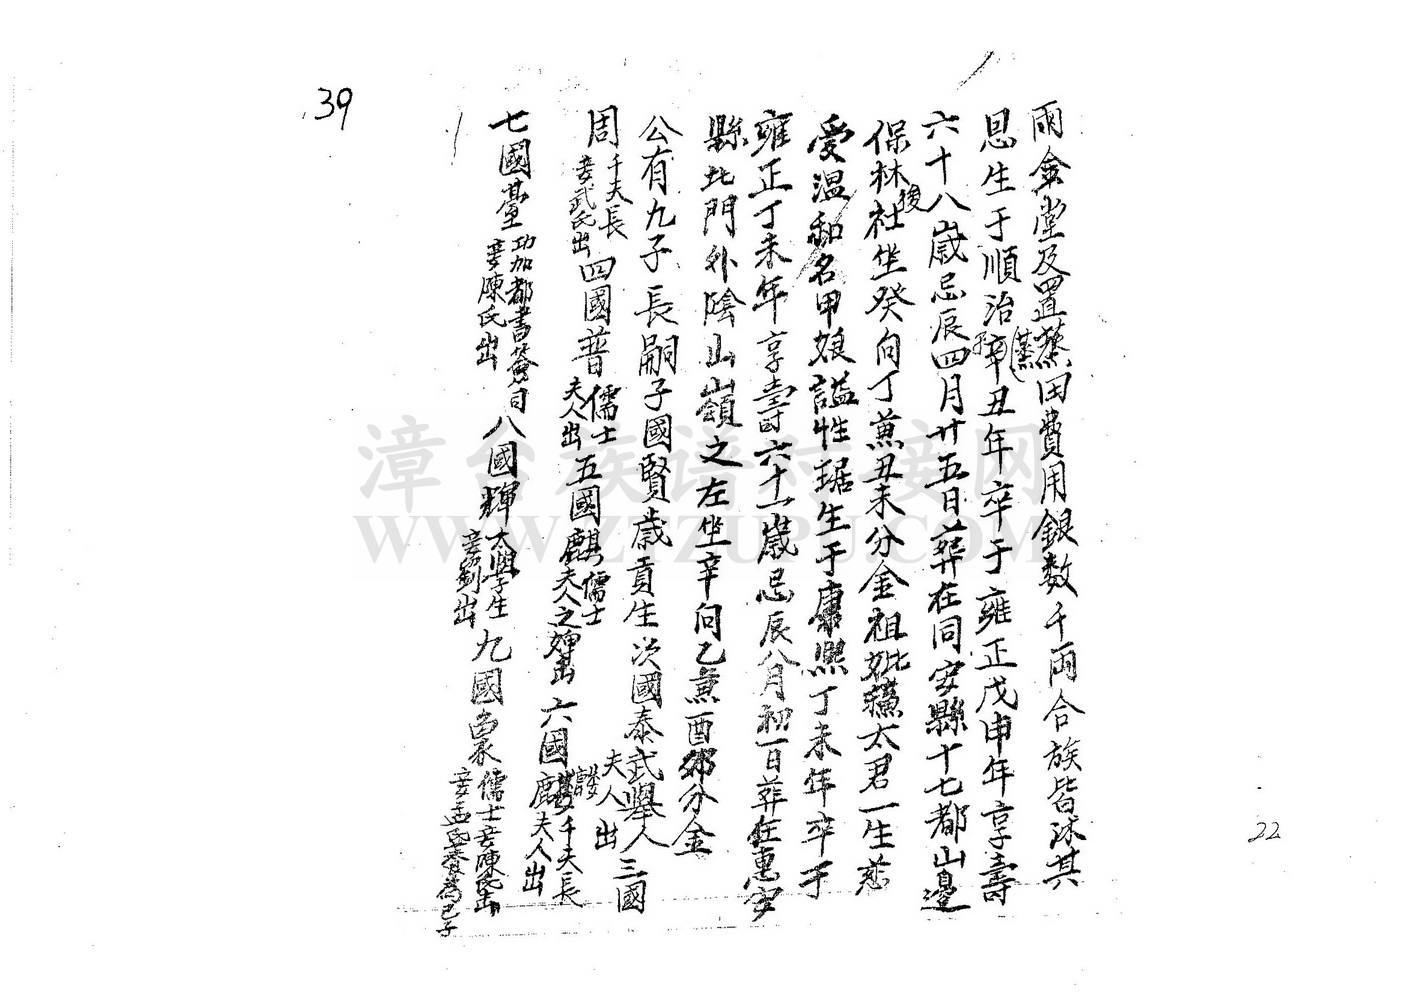 39
兩金堂及置蒸田費用銀数千兩合族皆沐其
(蒸)
恩生于順治辛丑年卒于雍正戊申年享壽
六十八歲忌辰四月廿五日葬在同安縣十七都山邊
保林後社坐癸向丁兼丑未分金祖妣蘓太君一生慈
愛温和名甲娘謚性琚生于康熙丁未年卒于
雍正丁未年享壽六十一歲忌辰八月初一日葬在惠安
縣北門外陰山嶺之左坐辛向乙兼酉卯分金
公有九子長嗣子國賢歲貢生次國泰武舉人夫人出三國
周千夫長妾武氏出四國普儒士夫人出五國麒儒士夫人之婢出六國麟千夫長夫人出
七國臺功加都書僉同妾陳氏出八國輝太學生妾劉出九國襄儒士妾陳氏出妾孟氏養為己子
22
漳台族谱对接网
WWW.ZTZUPU.COM